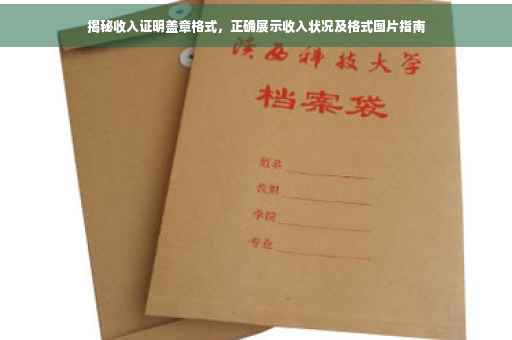 揭秘收入证明盖章格式，正确展示收入状况及格式图片指南
陕西科技大学
档案袋
姓名
学院
专业